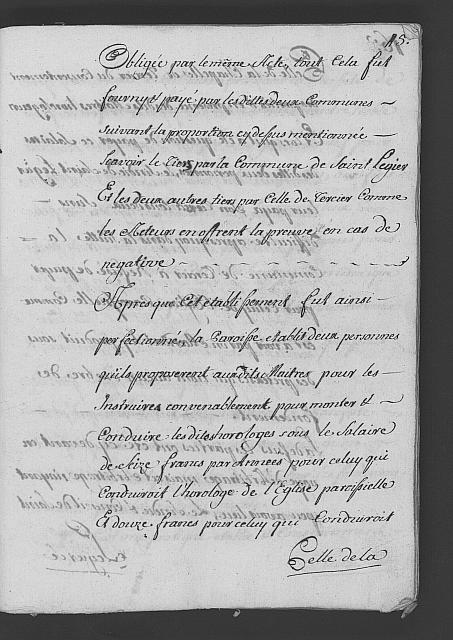 15.
Obligée par le même Acte, tout Cela fut
fourny & payé par les dittes deux Communes -
suivant la proportion cy dessus mentionnée -
scavoir le tiers par la Commune de Saint Legier
Et les deux autres tiers par Celle de Tercier Comme
les Acteurs en offrent la preuve en cas de
negative - - - - - - -
Apres que Cet etablissement fut ainsi -
perfectionné, la Paroisse etablit deux personnes
qu'ils proposerent aux dits Maitres pour les -
Instruires convenablement pour monter & -
Conduire les dits horologes sous le Salaire
de Seize francs par Années pour celuy qui
Conduiroit l'horologe de l'Eglise paroissielle
Et douze francs pour celuy qui Conduiroit
Celle de la